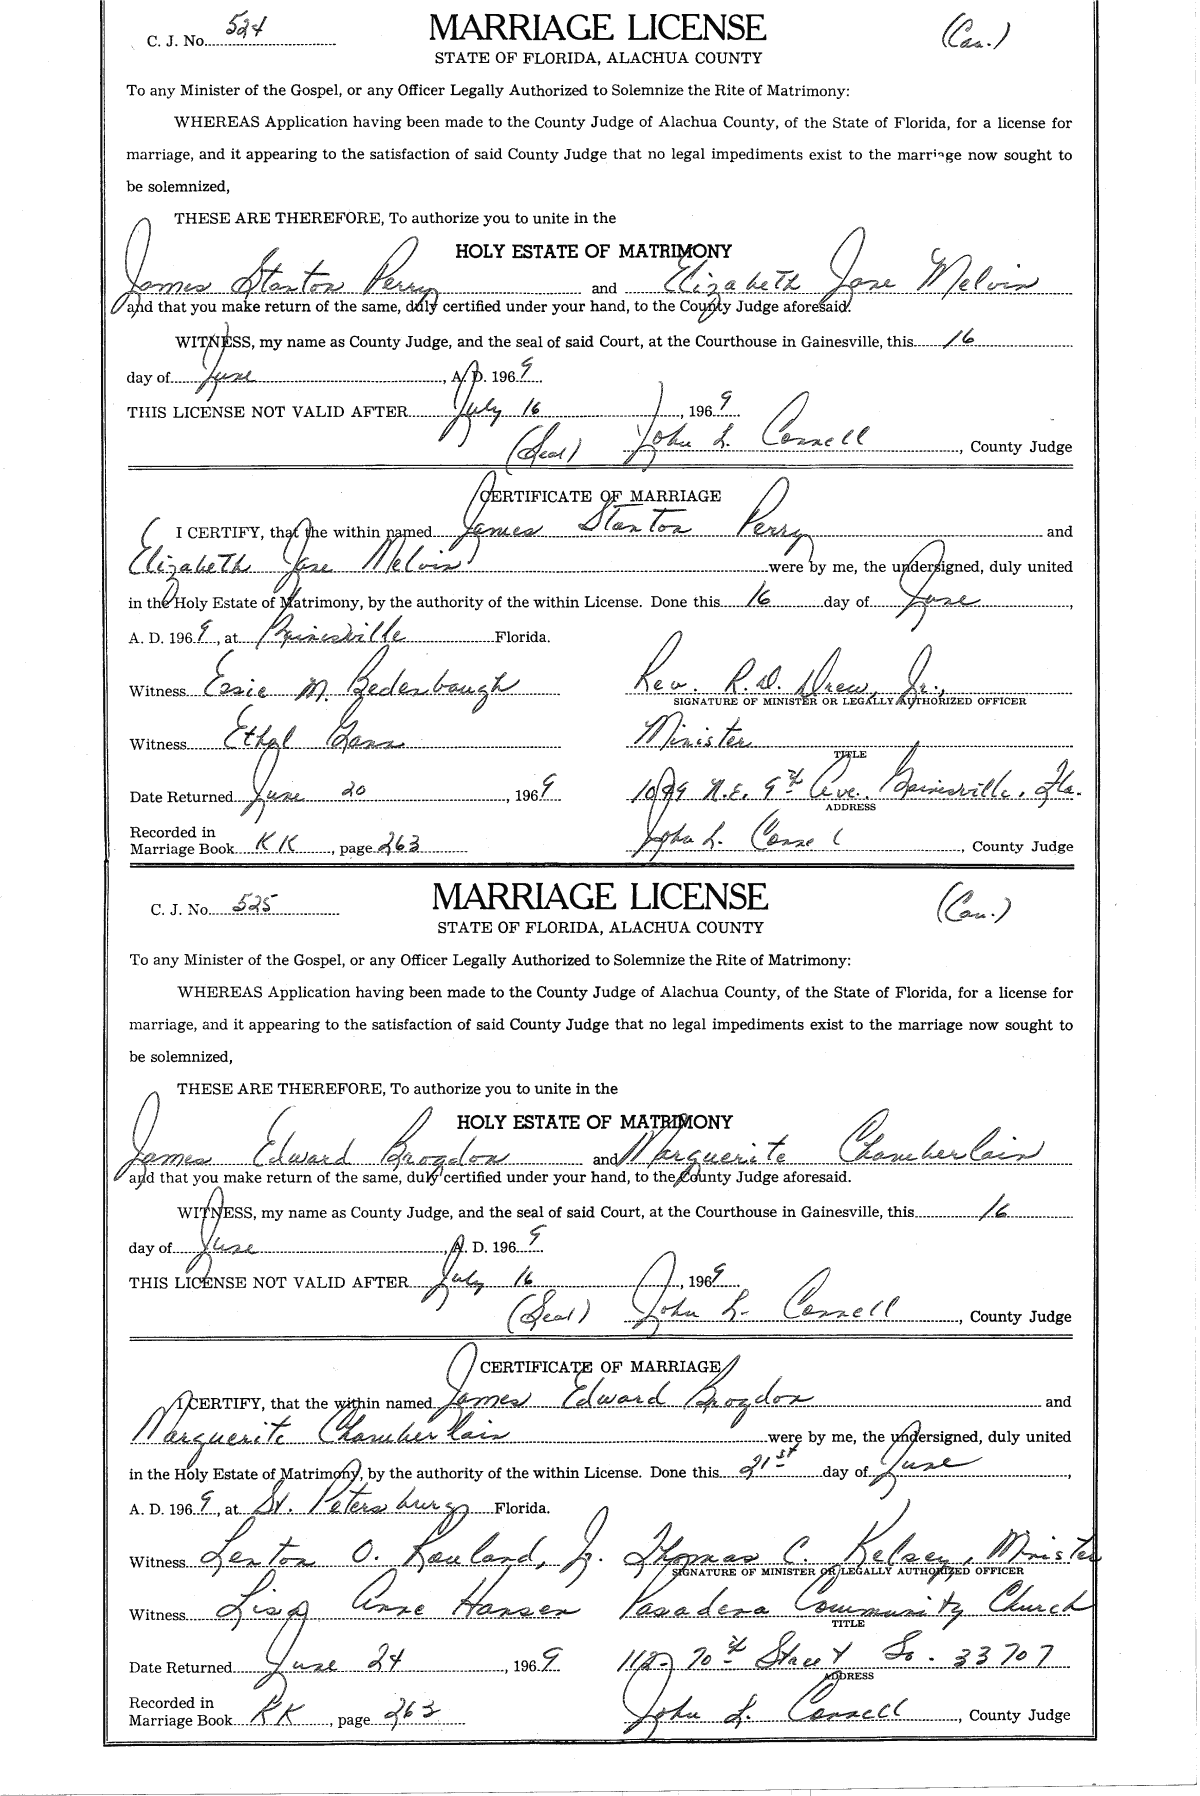 C. J. No. 524 MARRIAGE LICENSE (Cau.)
STATE OF FLORIDA, ALACHUA COUNTY
To any Minister of the Gospel, or any Officer Legally Authorized to Solemnize the Rite of Matrimony:
WHEREAS Application having been made to the County Judge of Alachua County, of the State of Florida, for a license for
marriage, and it appearing to the satisfaction of said County Judge that no legal impediments exist to the marriage now sought to
be solemnized,
THESE ARE THEREFORE, To authorize you to unite in the
HOLY ESTATE OF MATRIMONY
James Stanton Perry and Elizabeth Jane Melvin
and that you make return of the same, duly certified under your hand, to the County Judge aforesaid.
WITNESS, my name as County Judge, and the seal of said Court, at the Courthouse in Gainesville, this 16
day of June, A. D. 1969
THIS LICENSE NOT VALID AFTER July 16, 1969
(Seal) John L. Connell, County Judge
CERTIFICATE OF MARRIAGE
I CERTIFY, that the within named James Stanton Perry and
Elizabeth Jane Melvin were by me, the undersigned, duly united
in the Holy Estate of Matrimony, by the authority of the within License. Done this 16 day of June,
A. D. 1969, at Gainesville Florida.
Witness Essie M. Bedenbaugh Rev. R. D. Drew, Jr.,
SIGNATURE OF MINISTER OR LEGALLY AUTHORIZED OFFICER
Witness Ethel Gann Minister
TITLE
Date Returned June 20, 1969 N.E. 9th Ave. Gainesville, Fla.
ADDRESS
Recorded in
Marriage Book KK, page 263 John L. Conne l, County Judge
C. J. No. 525 MARRIAGE LICENSE (Cau.)
STATE OF FLORIDA, ALACHUA COUNTY
To any Minister of the Gospel, or any Officer Legally Authorized to Solemnize the Rite of Matrimony:
WHEREAS Application having been made to the County Judge of Alachua County, of the State of Florida, for a license for
marriage, and it appearing to the satisfaction of said County Judge that no legal impediments exist to the marriage now sought to
be solemnized,
THESE ARE THEREFORE, To authorize you to unite in the
HOLY ESTATE OF MATRIMONY
James Edward Brogdon and Marguerite Chamberlain
and that you make return of the same, duly certified under your hand, to the County Judge aforesaid.
WITNESS, my name as County Judge, and the seal of said Court, at the Courthouse in Gainesville, this 16
day of June, A. D. 1969
THIS LICENSE NOT VALID AFTER July 16, 1969
(Seal) John L. Connell, County Judge
CERTIFICATE OF MARRIAGE
I CERTIFY, that the within named James Edward Brogdon and
Marguerite Chamberlain were by me, the undersigned, duly united
in the Holy Estate of Matrimony, by the authority of the within License. Done this 21st day of June,
A. D. 1969, at St. Petersburg Florida.
Witness Lenton O. Rowland, Jr. Thomas C. Kelsey, Minister
SIGNATURE OF MINISTER OR LEGALLY AUTHORIZED OFFICER
Witness Lisa Anne Hansen Pasadena Community Church
TITLE
Date Returned June 24, 1969 112 70th Street So. 33707
ADDRESS
Recorded in
Marriage Book KK, page 263 John L. Connell, County Judge